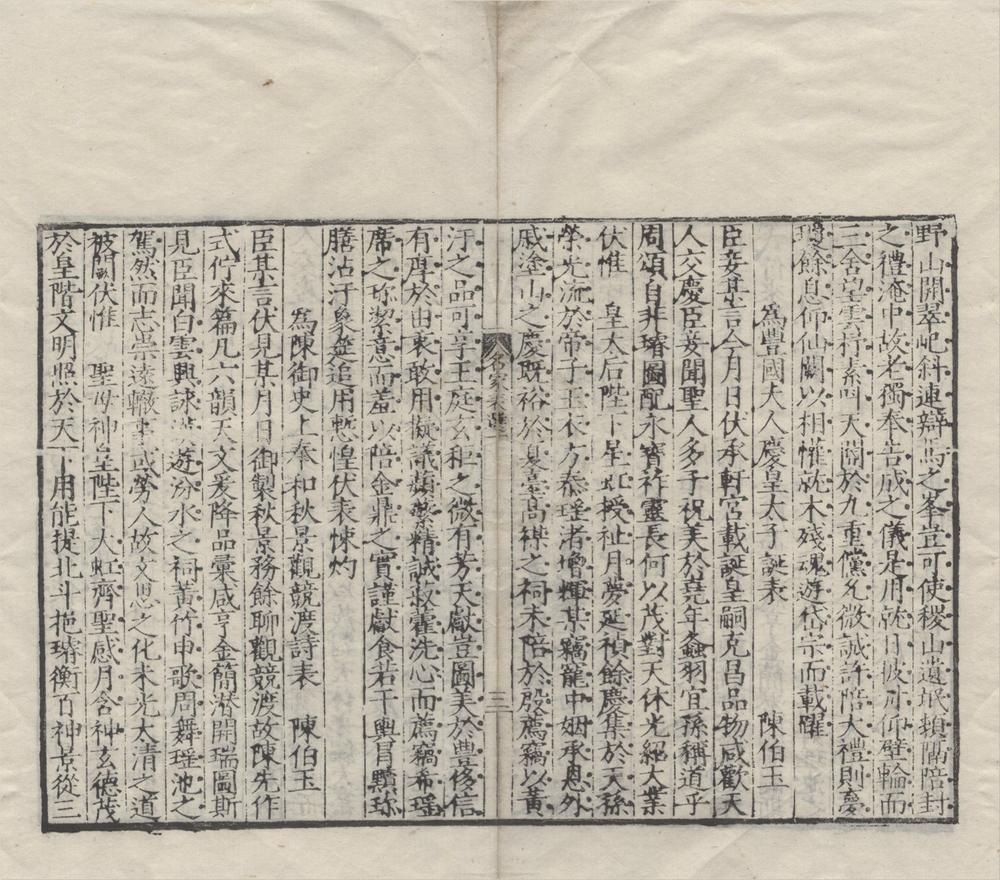 野山開翠屺斜連辯馬之峯豈可使稷山遺垊頻闕陪封
之禮淹中故老獨奉告成之儀是用就日披丹仰璧輪而
三舍望雲抒素叫天關於九重儻允微誠許陪大禮則慶
餘息仰仙闕以相懽就木殘魂遊岱宗而載躍
爲豐國夫人慶皇太子誕表 陳伯玉
臣妾某言今月日伏承軒宮載誕皇嗣克昌品物咸歡天
人交慶臣妾聞聖人多子祝美於堯年螽羽宜孫稱道乎
周頌自非璿圖配永寶祚靈長何以茂對天休光紹大業
伏惟 皇太后陛下星虹授祉月夢延禎餘慶集於天孫
榮光流於帝子玉衣方泰瑤渚增輝某竊寵中姻承恩外
戚塗山之慶旣裕於夏臺高禖之祠未陪於殷薦竊以黃
汙之品可享王庭玄秬之微有芳天獻豈圖美於豊侈信
有厚於由衷敢用擬議蘋蘩精誠菽藿洗心而薦竊希瑶
席之珎潔意而羞以陪金鼎之實謹獻食若干轝冐黷珎
膳沾汙象筵追用慙惶伏表悚灼
爲陳御史上奉和秋景觀競渡詩表 陳伯玉
臣某言伏見某月日御製秋景務餘聊觀競渡故陳先作
式佇來篇凡六韻天文爰降品彙咸亨金簡潛開瑞圖斯
見臣聞白雲興詠遊汾水之祠黃竹申歌周舞瑤池之
駕然而志祟遠轍事或勞人故文思之化未光太清之道
被關伏惟 聖母神皇陛下大虹齊聖感月含神玄德茂
於皇階文明照於天下用能提北斗挹璿衡百神景從三
名家表選
三